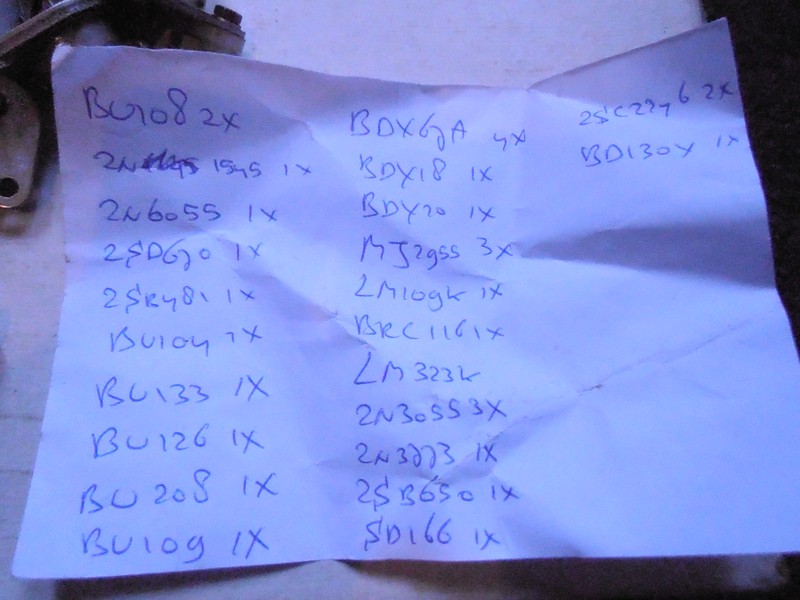 BU108 2X
2N 1545 1X
2N6055 1X
2SD670 1X
2SB481 1X
BU104 1X
BU133 1X
BU126 1X
BU208 1X
BU109 1X
BDX67A 4X
BDY18 1X
BDY20 1X
MJ2955 3X
LM109K 1X
BRC116 1X
LM323K
2N3055 3X
2N3773 1X
2SB650 1X
SD166 1X
2SC2246 2X
BD130Y 1X